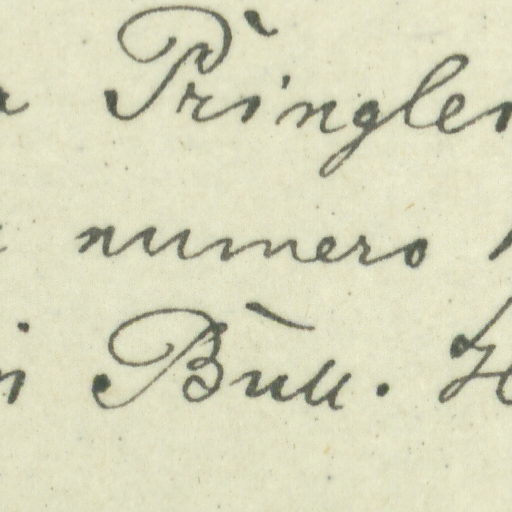 Pringle
numero
Bull. H